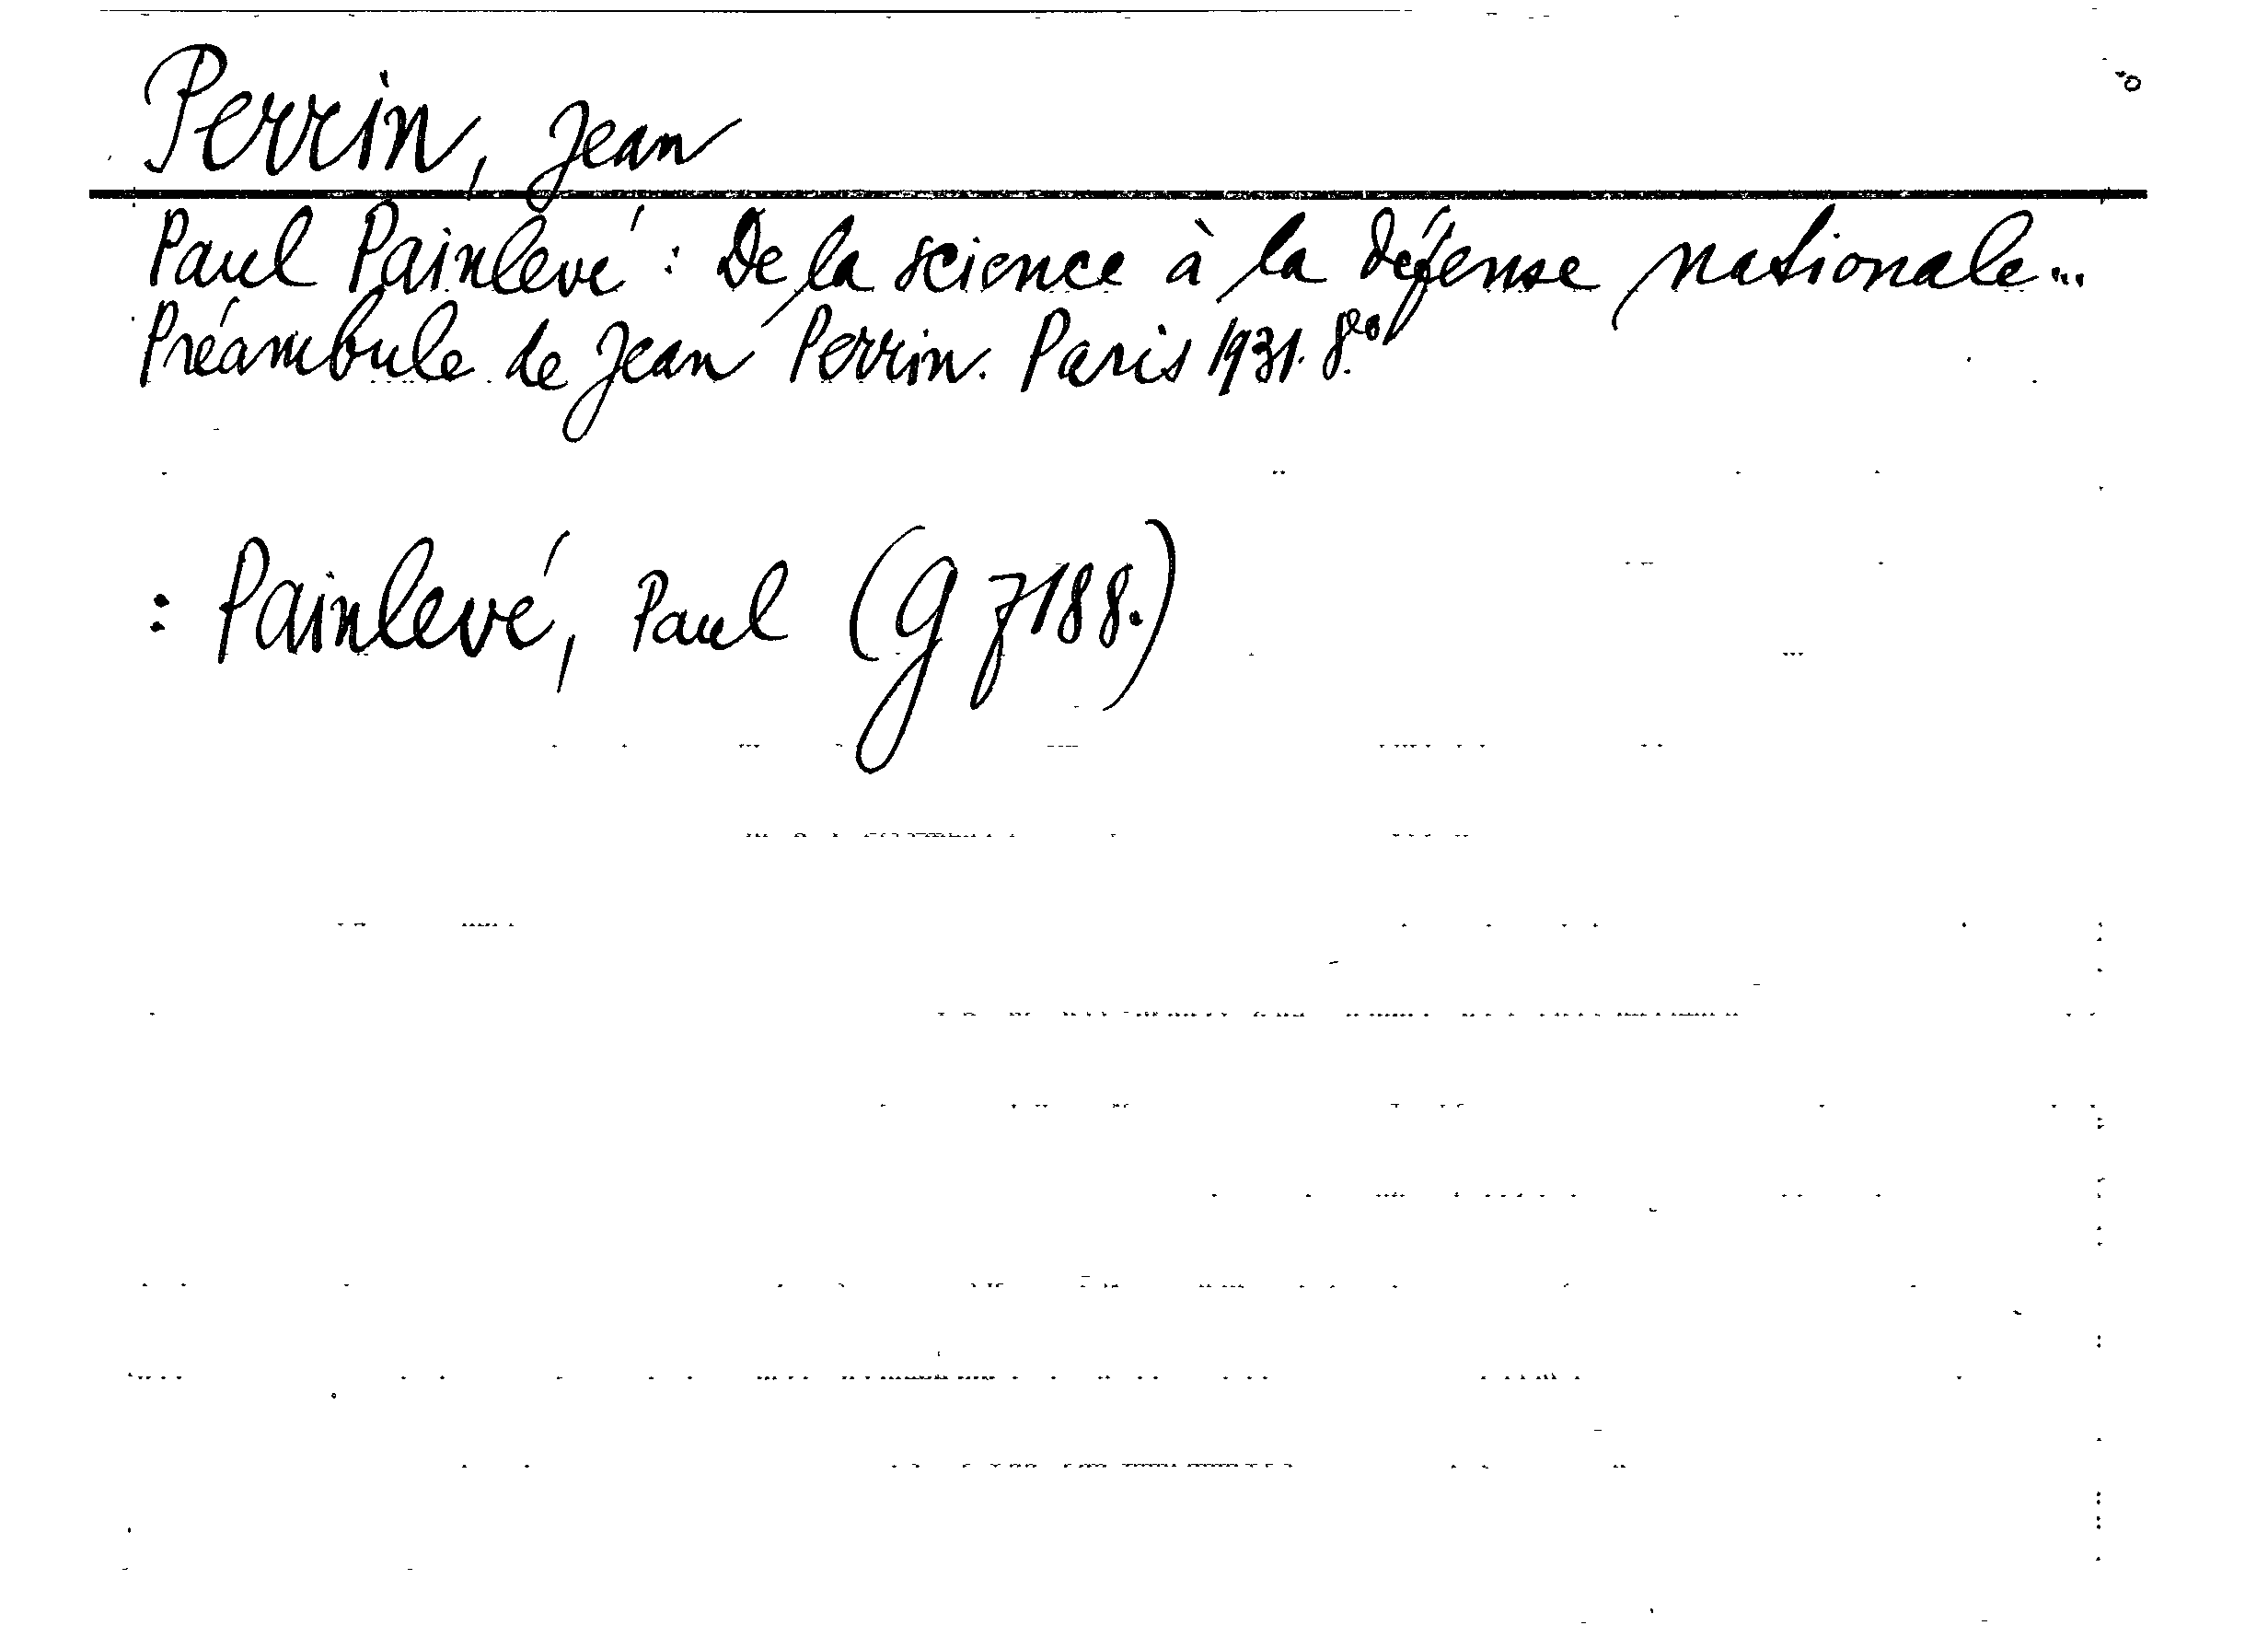 Perrin, Jean
Paul Painlevé : De la science à la défense nationale...
Préambule de Jean Perrin. Paris 1931. 8°.
: Painlevé, Paul (G 7188.)